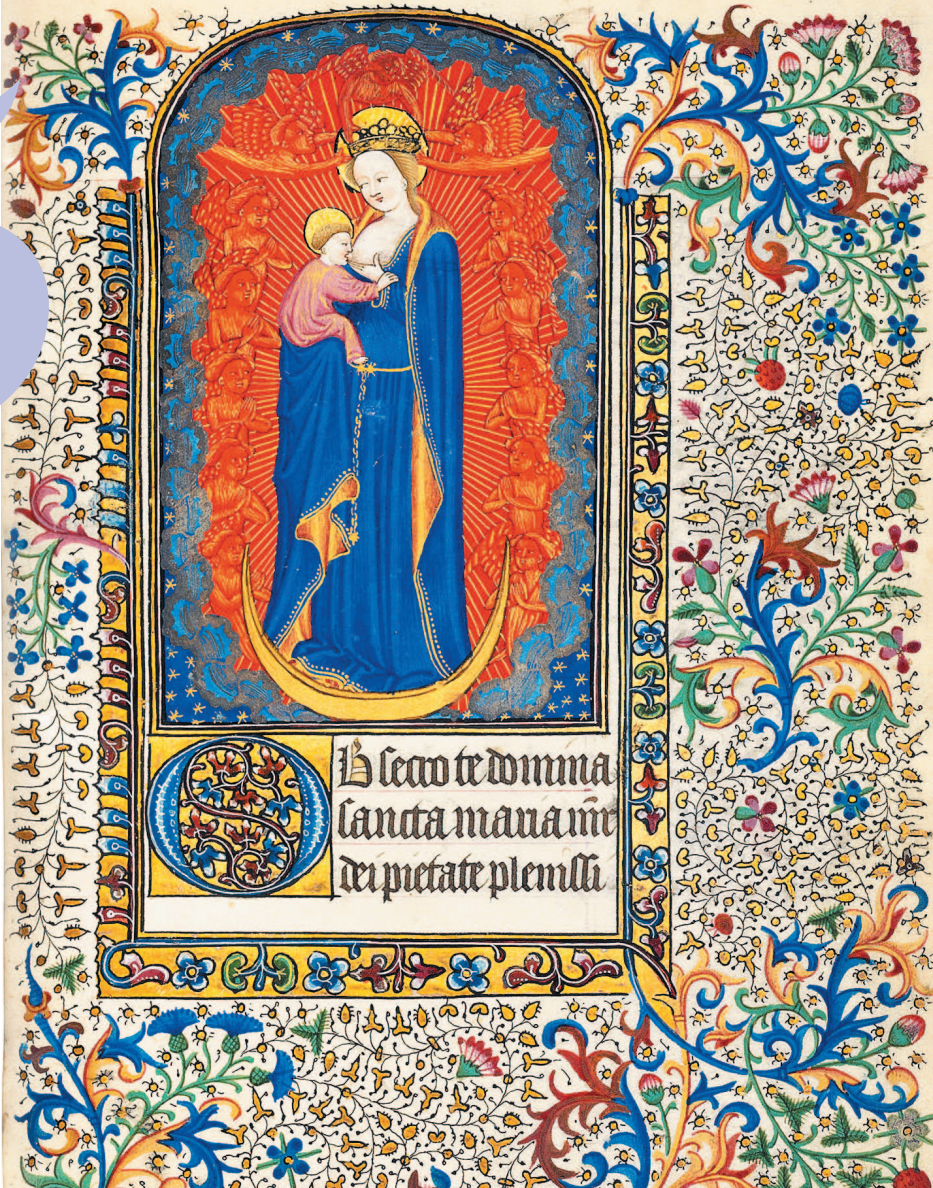 OBsecro te domina
sancta maria mr̄
dei pietate plenissi